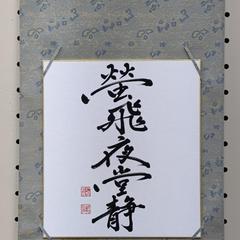 螢飛夜堂静